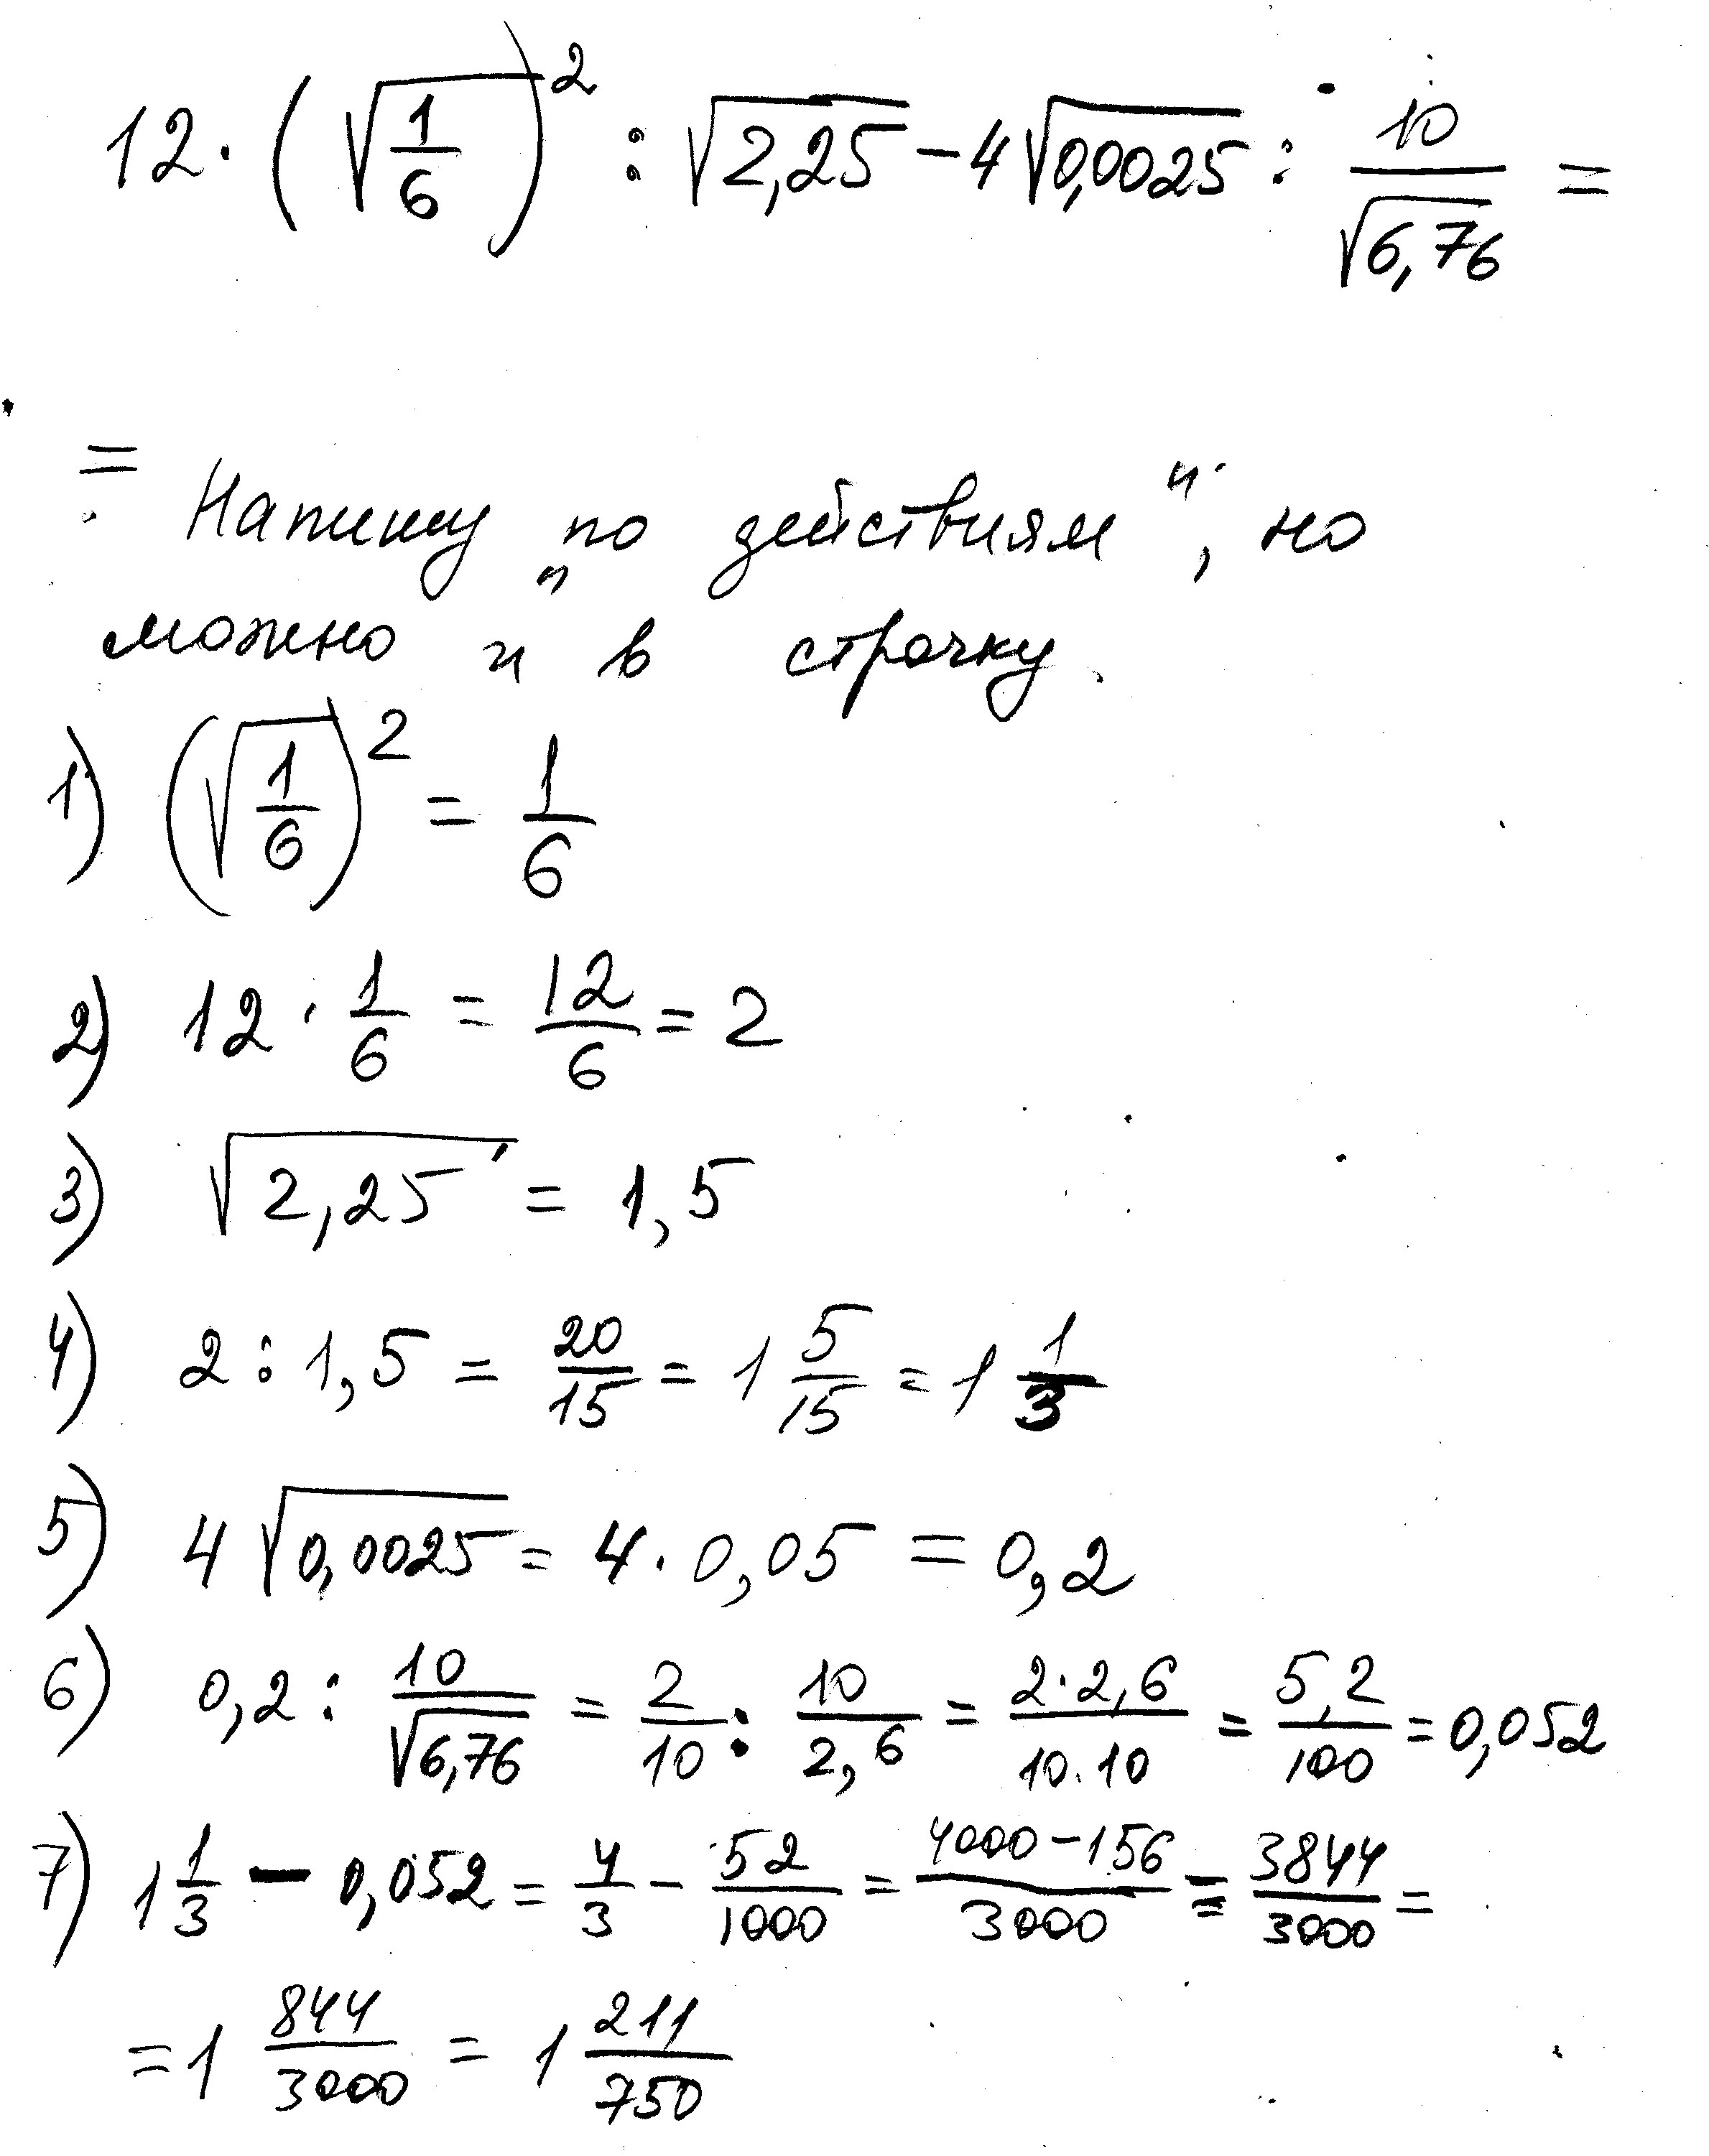 12 · (√(1/6))² : √2,25 − 4√0,0025 : 10/√6,76 =
= Напишу „по действиям“, но
можно и в строчку.
1) (√(1/6))² = 1/6
2) 12 · 1/6 = 12/6 = 2
3) √2,25 = 1,5
4) 2 : 1,5 = 20/15 = 1 5/15 = 1 1/3
5) 4√0,0025 = 4 · 0,05 = 0,2
6) 0,2 : 10/√6,76 = 2/10 : 10/2,6 = 2·2,6/10·10 = 5,2/100 = 0,052
7) 1 1/3 − 0,052 = 4/3 − 52/1000 = 4000−156/3000 = 3844/3000 =
= 1 844/3000 = 1 211/750